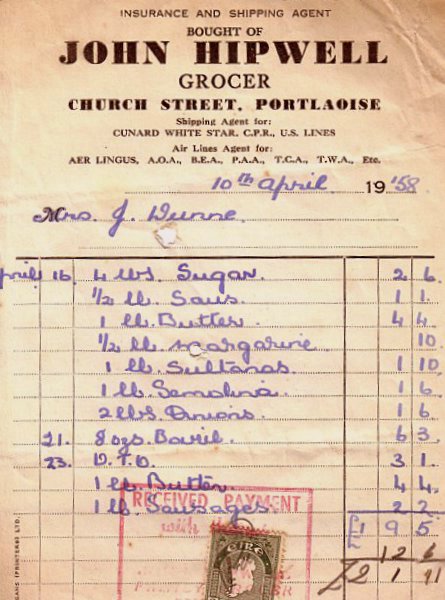 INSURANCE AND SHIPPING AGENT
BOUGHT OF
JOHN HIPWELL
GROCER
CHURCH STREET, PORTLAOISE
Shipping Agent for:
CUNARD WHITE STAR, C.P.R., U.S. LINES
Air Lines Agent for:
AER LINGUS, A.O.A., B.E.A., P.A.A., T.C.A., T.W.A., Etc.
10th April 19'58
Mrs. J. Dunne
April 16. 4 lbs. Sugar. 2 6
1/2 lb. Saus. 1 1
1 lb. Butter. 4 4
1/2 lb. Margarine 10
1 lb. Sultanas. 1 10
1 lb. Semolina. 1 6
2 lbs. Onions. 1 6
21. 8 ozs. Bovril. 6 3
23. D.T.O. 3 1
1 lb. Butter. 4 4
1 lb. Sausages 2 2
RECEIVED PAYMENT
£1 9 5
with
12 6
ÉIRE
£2 1 11
(PRINTERS) LTD.